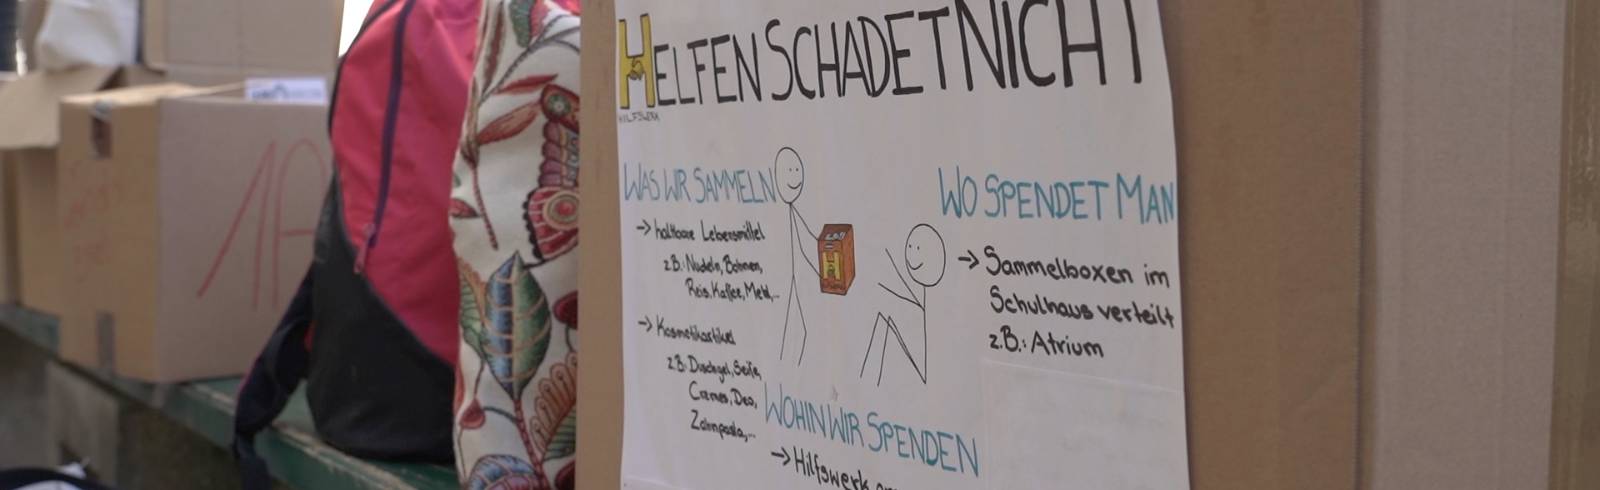 1A
HELFEN SCHADET NICHT
HILFSWERK
WAS WIR SAMMELN
→ haltbare Lebensmittel
z.B.: Nudeln, Bohnen,
Reis, Kaffee, Mehl,...
→ Kosmetikartikel
z.B.: Duschgel, Seife,
Cremes, Deo,
Zahnpasta,...
H
WO SPENDET MAN
→ Sammelboxen im
Schulhaus verteilt
z.B.: Atrium
WOHIN WIR SPENDEN
→ Hilfswerk